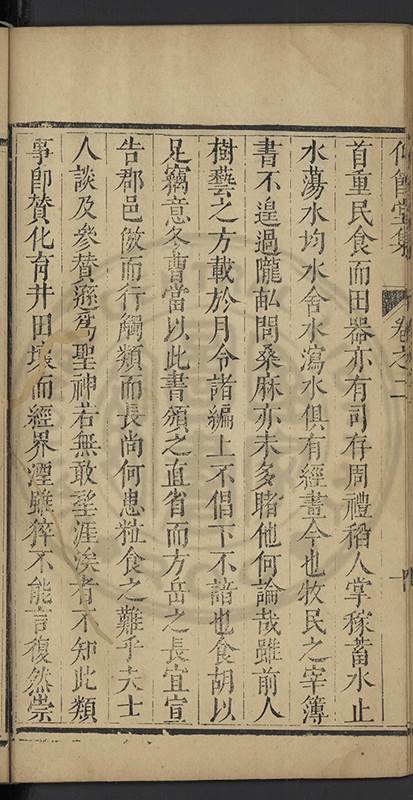 仰節堂集 卷之二 十
首重民食而田器亦有司存周禮稻人掌稼蓄水止
水蕩水均水舍水瀉水俱有經畫今也牧民之宰簿
書不遑過隴畝問桑麻亦未多睹他何論哉雖前人
樹藝之方載於月令諸編上不倡下不諳也食胡以
足竊意冬曹當以此書頒之直省而方岳之長宜宣
告郡邑倣而行觸類而長尚何患粒食之難乎夫士
人談及參贊遜為聖神若無敢望涯涘者不知此類
事卽贊化育井田壞而經界湮雖猝不能言復然崇